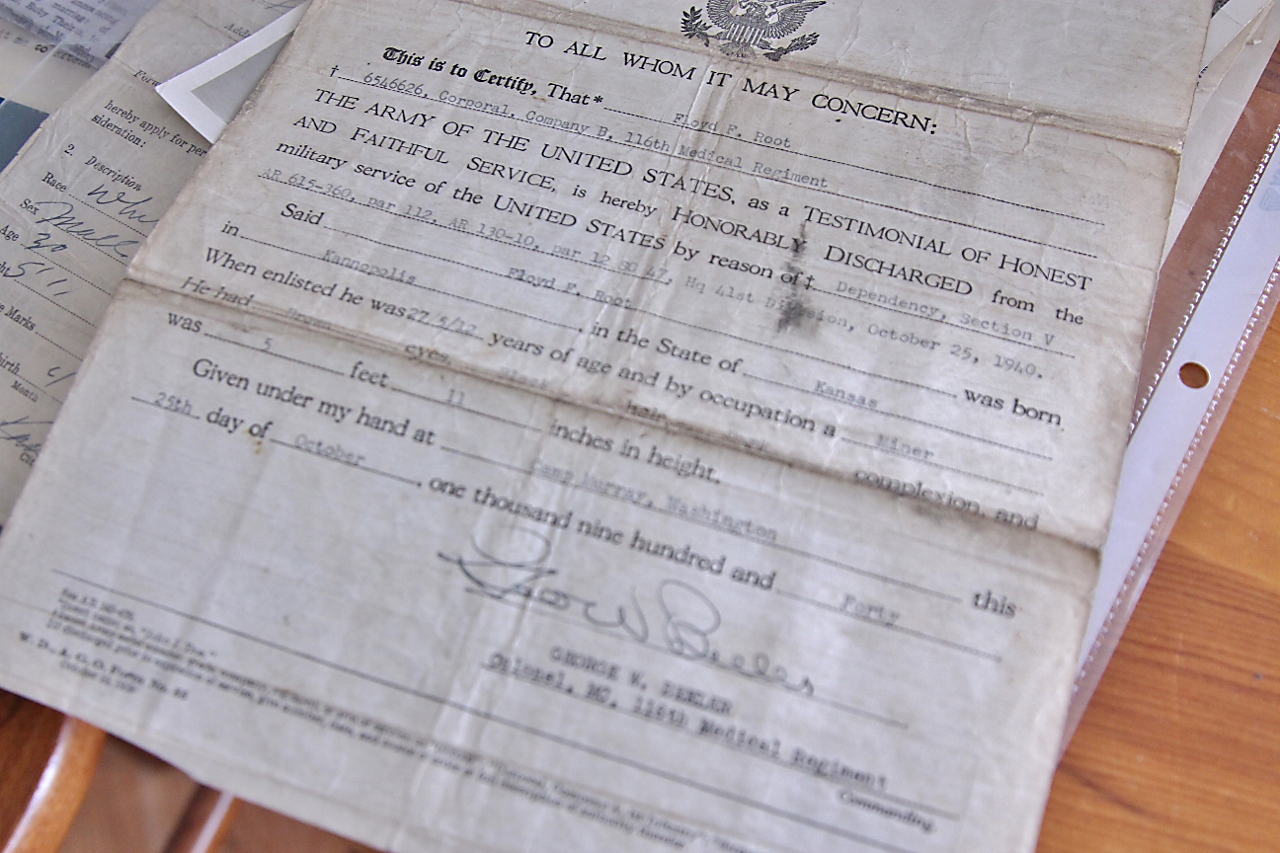 TO ALL WHOM IT MAY CONCERN:
This is to Certify, That* Floyd F. Root
† 6546626, Corporal, Company B, 116th Medical Regiment
THE ARMY OF THE UNITED STATES, as a TESTIMONIAL OF HONEST
AND FAITHFUL SERVICE, is hereby HONORABLY DISCHARGED from the
military service of the UNITED STATES by reason of‡ Dependency, Section V
AR 615-360, par 112, AR 130-10, par 12 SO 47, Hq 41st Division, October 25, 1940.
Said Floyd F. Root, was born
in Kannopolis, in the State of Kansas
When enlisted he was 27 5/12 years of age and by occupation a Miner
He had Brown eyes, hair, complexion, and
was 5 feet 11 inches in height.
Given under my hand at Camp Murray, Washington this
25th day of October, one thousand nine hundred and Forty
GEORGE W. BEELER
Colonel, MC, 116th Medical Regiment
Commanding.
W. D., A. G. O. Form No. 55
hereby apply for per
sideration:
2. Description
Race
Sex Male
Age 30
5'11
Marks
birth
Month